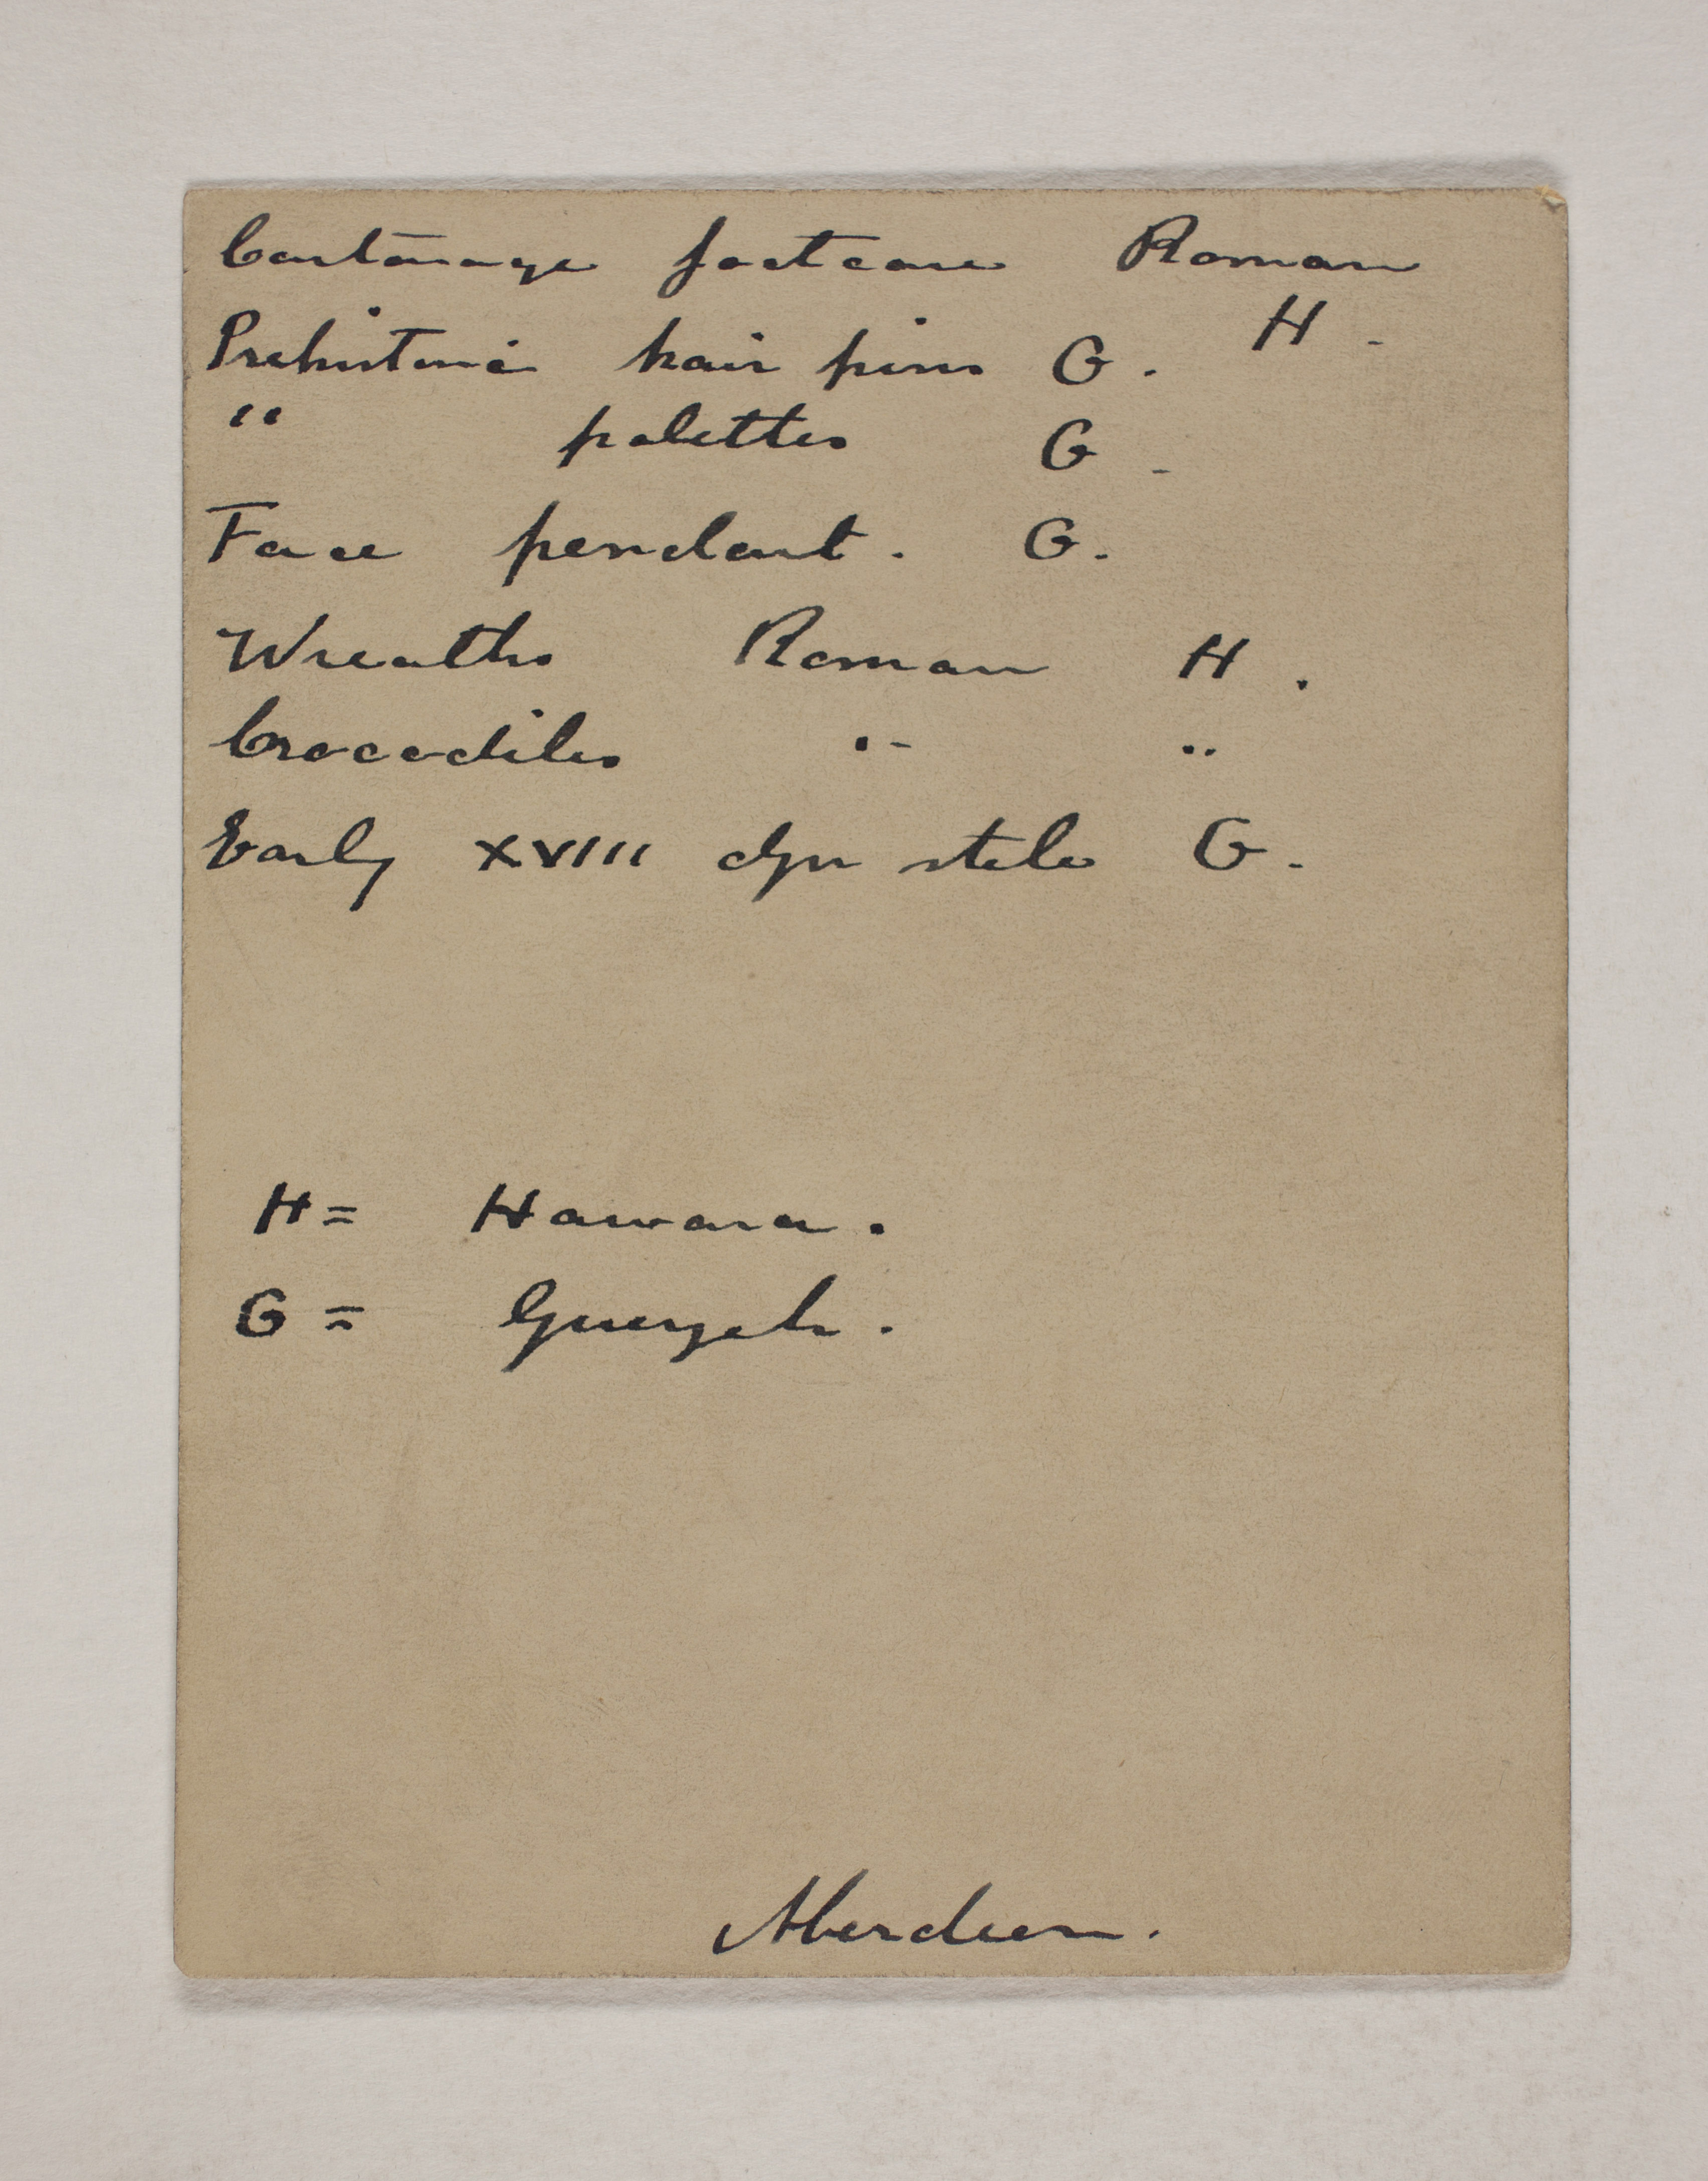 Cartonnage footcase Roman
H.
Prehistoric hair pins G.
" palettes G.
Face pendant. G.
Wreaths Roman H.
Crocodiles " "
Early XVIII dyn stele G.
H = Hawara.
G = Guerzeh.
Aberdeen.